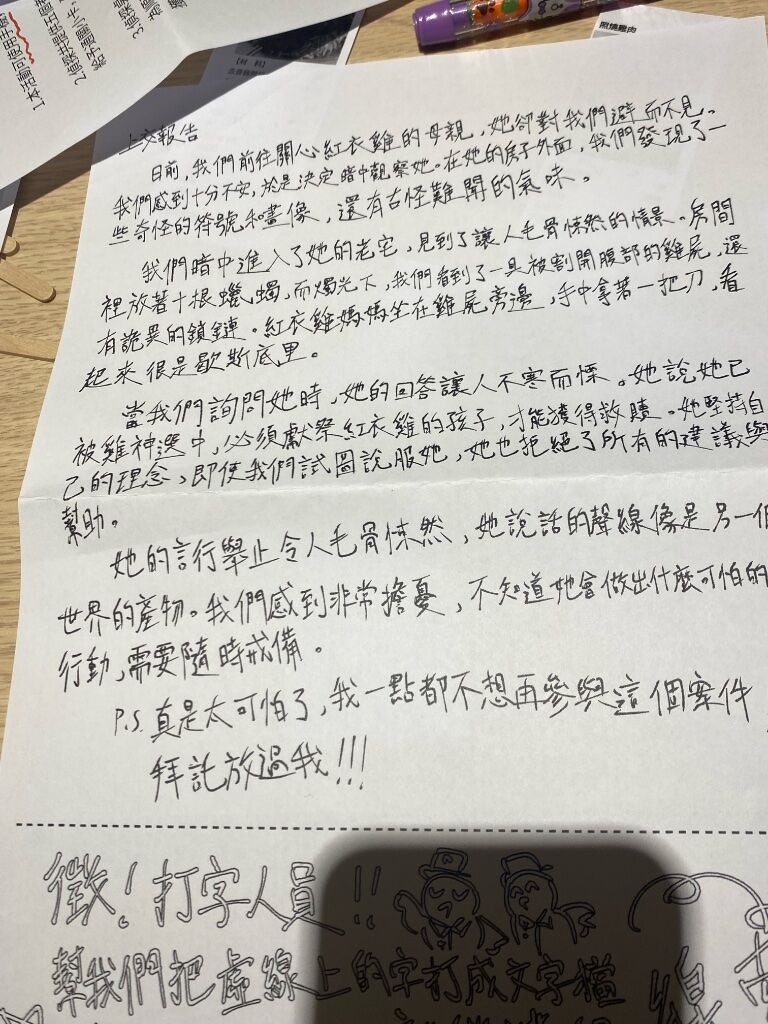 1.本活動問使用手機
2.偵探共居住
【材料】
照燒雞肉
上交報告
日前,我們前往關心紅衣雞的母親,她卻對我們避而不見。
我們感到十分不安,於是決定暗中觀察她。在她的房子外面,我們發現了一
些奇怪的符號和畫像,還有古怪難聞的氣味。
我們暗中進入了她的老宅,見到了讓人毛骨悚然的情景。房間
裡放著十根蠟蠋,而燭光下,我們看到了一具被割開腹部的雞屍,還
有詭異的鎖鏈。紅衣雞媽媽坐在雞屍旁邊,手中拿著一把刀,看
起來很是歇斯底里。
當我們詢問她時,她的回答讓人不寒而慄。她說她已
被雞神選中,必須獻祭紅衣雞的孩子,才能獲得救贖。她堅持自
己的理念,即使我們試圖說服她,她也拒絕了所有的建議與
幫助。
她的言行舉止令人毛骨悚然,她說話的聲線像是另一個
世界的產物。我們感到非常擔憂,不知道她會做出什麼可怕的
行動,需要隨時戒備。
P.S.真是太可怕了,我一點都不想再參與這個案件,
拜託放過我!!!
徵!打字人員!!
幫我們把虛線上的字打成文字檔